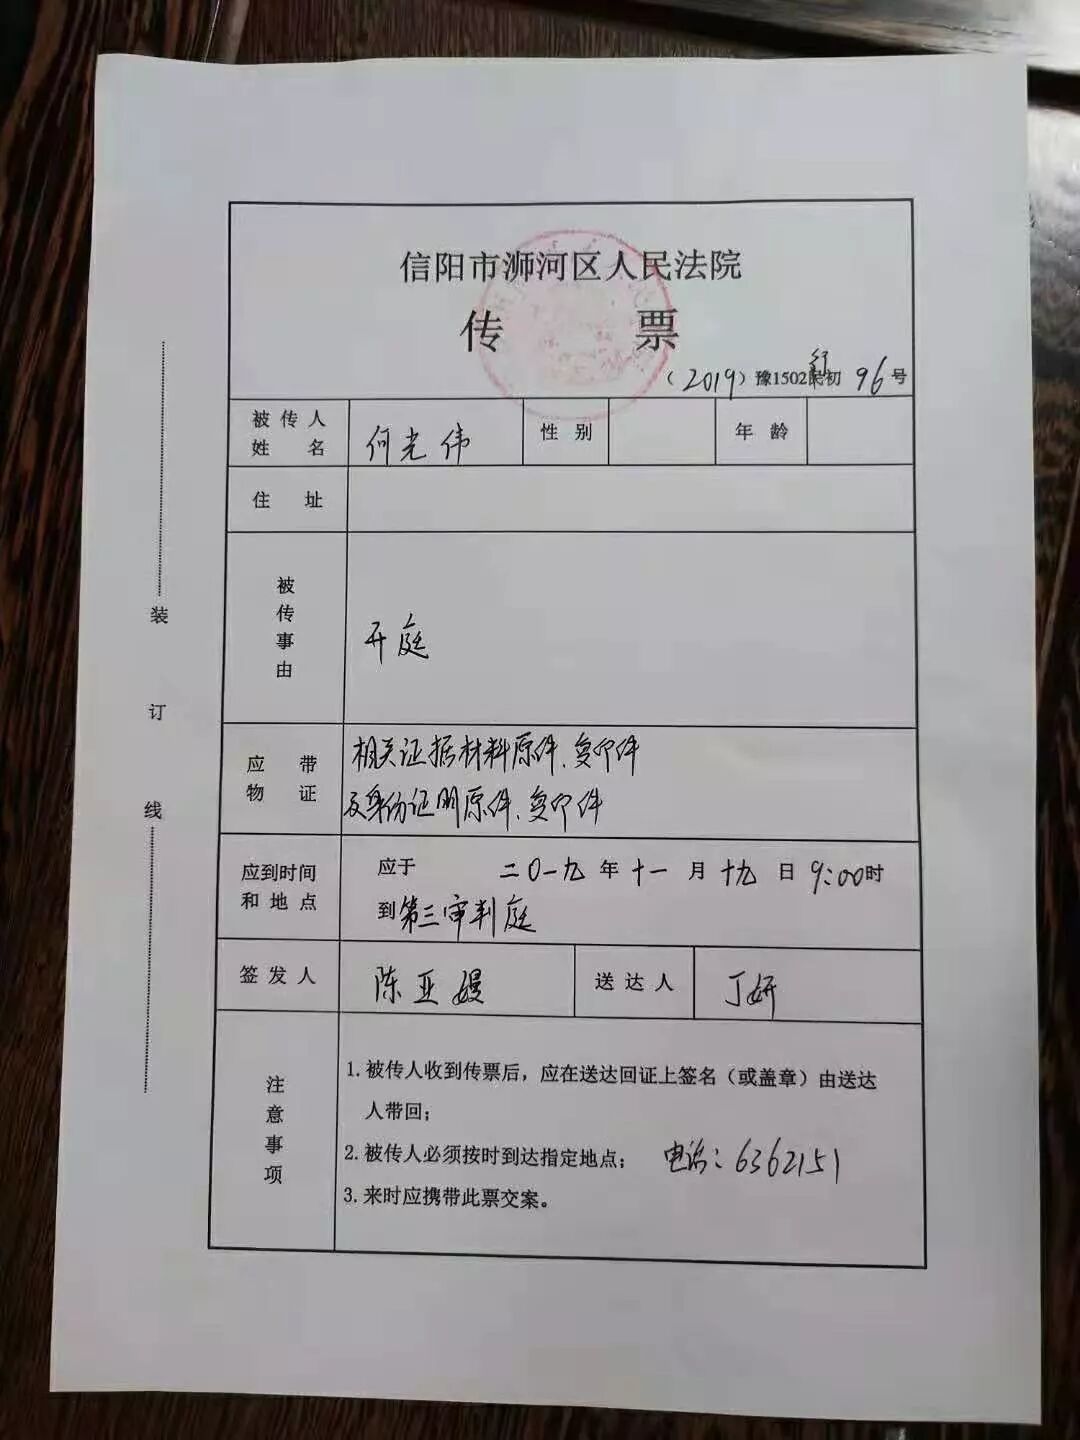 信阳市浉河区人民法院
传 票
（2019）豫1502行初 96 号
被传人姓名 何光伟 性别 年龄
住址
被传事由 开庭
应带物证 相关证据材料原件、复印件
及身份证明原件、复印件
应到时间和地点 应于 二0一九 年 十一 月 十九 日 9:00时
到第三审判庭
签发人 陈亚嫚 送达人 丁妍
注意事项
1. 被传人收到传票后，应在送达回证上签名（或盖章）由送达
人带回；
2. 被传人必须按时到达指定地点； 电话：6362151
3. 来时应携带此票交案。
装
订
线